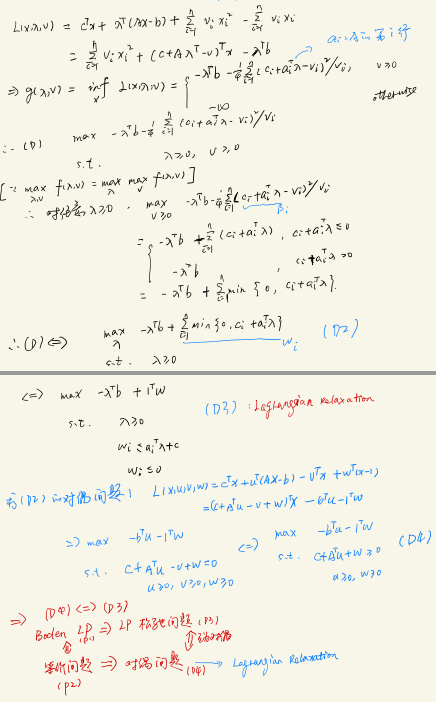 L(x,λ,ν) = cᵀx + λᵀ(Ax-b) + Σᵢ₌₁ⁿ νᵢxᵢ² - Σᵢ₌₁ⁿ νᵢxᵢ
= Σᵢ₌₁ⁿ νᵢxᵢ² + (c+Aᵀλ-ν)ᵀx - λᵀb
⇒ g(λ,ν) = inf_x L(x,λ,ν) = { -λᵀb - ¼ Σᵢ₌₁ⁿ (cᵢ+aᵢᵀλ-νᵢ)²/νᵢ, ν≥0
-∞ otherwise
∴ (D) max -λᵀb - ¼ Σᵢ₌₁ⁿ (cᵢ+aᵢᵀλ-νᵢ)²/νᵢ
s.t. λ≥0, ν≥0
[∵ max_{λ,ν} f(λ,ν) = max_λ max_ν f(λ,ν)]
∴ λ≥0, max_{ν≥0} -λᵀb - ¼ Σᵢ₌₁ⁿ (cᵢ+aᵢᵀλ-νᵢ)²/νᵢ
βᵢ
= { -λᵀb + Σᵢ₌₁ⁿ (cᵢ+aᵢᵀλ), cᵢ+aᵢᵀλ≤0
-λᵀb, cᵢ+aᵢᵀλ>0
= -λᵀb + Σᵢ₌₁ⁿ min{0, cᵢ+aᵢᵀλ}.
∴ (D) ⇔ max_λ -λᵀb + Σᵢ₌₁ⁿ min{0, cᵢ+aᵢᵀλ} (D2)
wᵢ
s.t. λ≥0
⇔ max -λᵀb + 1ᵀw
(D3): Lagrangian Relaxation
s.t. λ≥0
wᵢ≤aᵢᵀλ+c
wᵢ≤0
(D2) 的对偶问题: L(x,u,v,w) = cᵀx + uᵀ(Ax-b) - vᵀx + wᵀ(x-1)
= (c+Aᵀu-v+w)ᵀx - bᵀu - 1ᵀw
⇒ max -bᵀu-1ᵀw ⇔ max -bᵀu-1ᵀw
s.t. c+Aᵀu-v+w=0 s.t. c+Aᵀu+w≥0 (D4)
u≥0, v≥0, w≥0 u≥0, w≥0
⇒ (D4) <=> (D3)
LP ⇒ LP 松弛问题 (P3)
等价问题 ⇒ 对偶问题 (D4) → Lagrangian Relaxation
(P2)